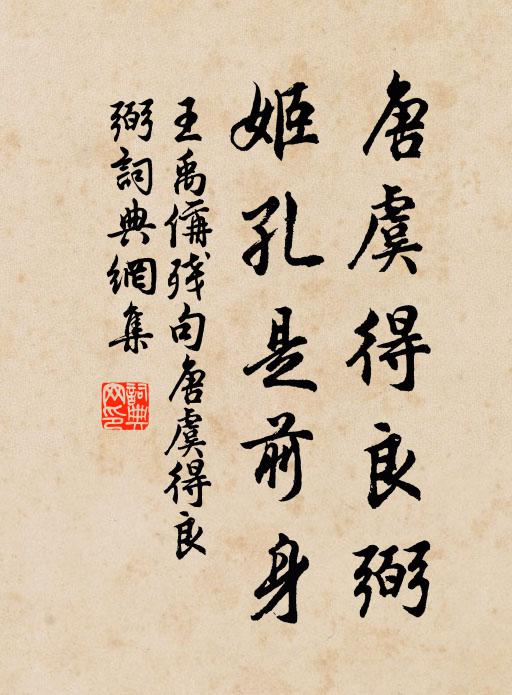 唐虞得良弼
姬孔是前身
王禹偁残句唐虞得良
弼詞典網集
詞典网印